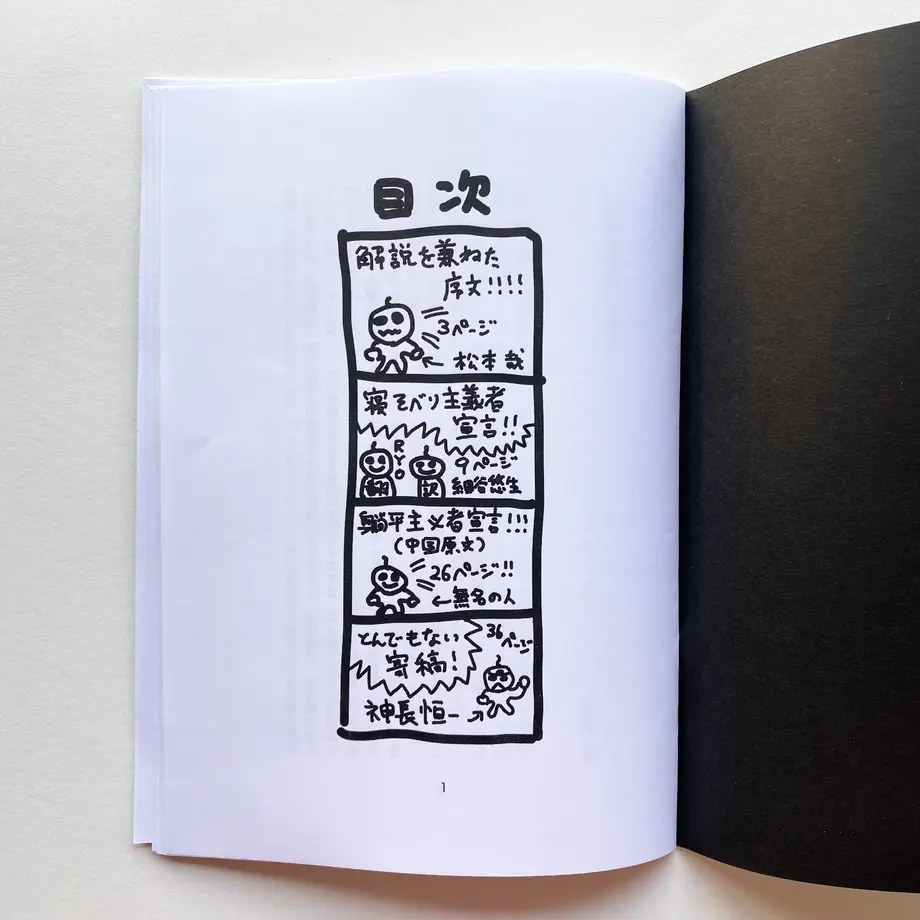 目次
解説を兼ねた
序文!!!!
3ページ
← 松本哉
寝そべり主義者
宣言!!
RYO
9ページ
翻 訳 細谷悠生
躺平主义者宣言!!!
(中国原文)
26ページ!!
←無名の人
とんでもない
寄稿!
36ページ
神長恒一 →
1